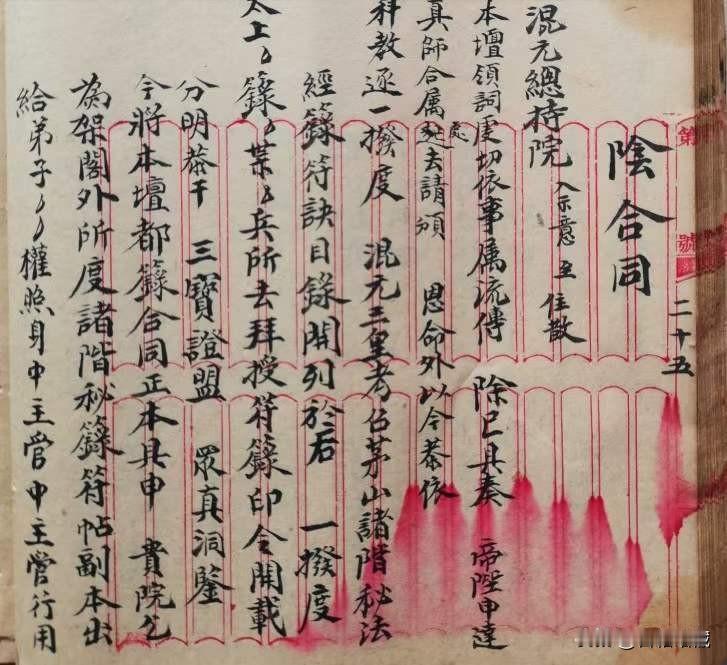 第 號 二十五
陰合同
混元總持院 入示意 至 住散
本壇領詞虔切依事属流傳 除已具奏 帝陛申達
真師合属處去請頒 恩命外以今恭依
科教逐一撥度 混元三皇考召茅山諸階秘法
經籙符訣目錄開列於右 一撥度
太上〻籙〻某〻兵所去拜授符籙印令開載
分明恭干 三寶證盟 眾真洞鑒
今將本壇都籙合同正本具申 貴院乞
為架閣外所度諸階秘籙符帖副本出
給弟子〻〻權照身中主管中主營行用